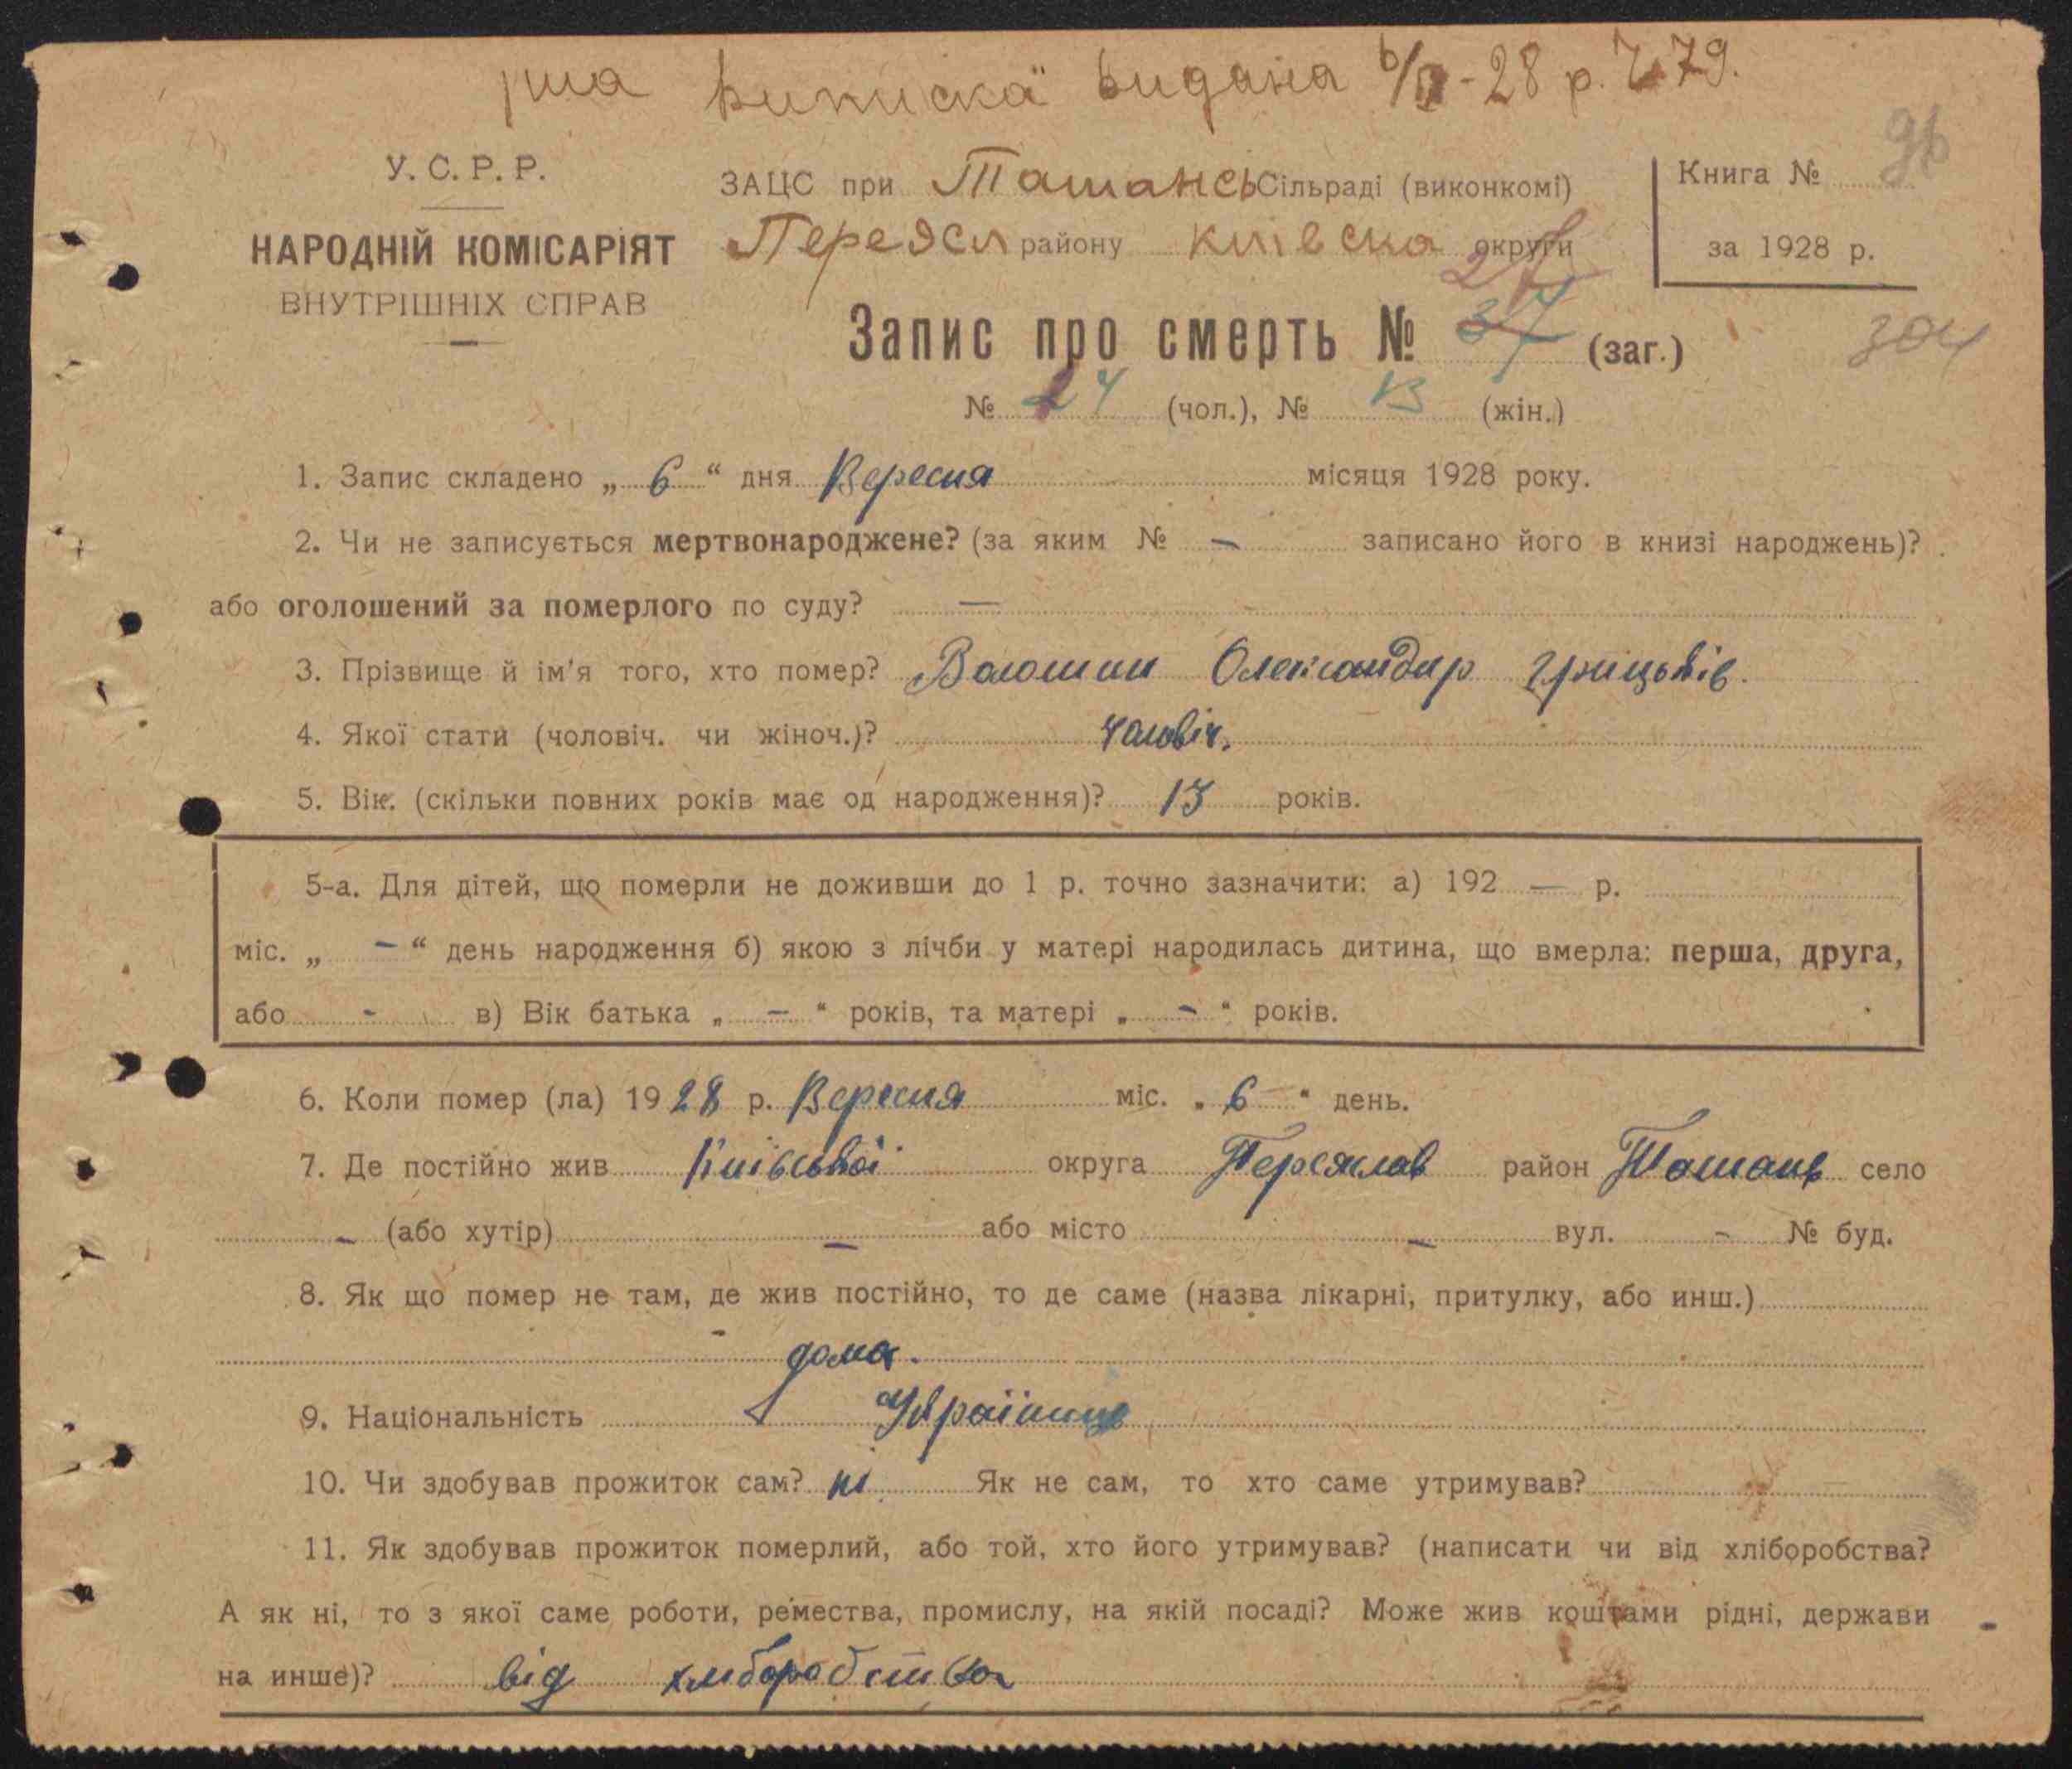 рша виписка видана 6/IX - 28 р. Ч. 79.
96
У. С. Р. Р.
НАРОДНІЙ КОМІСАРІЯТ
ВНУТРІШНІХ СПРАВ
ЗАЦС при Ташансь Сільраді (виконкомі)
Переясл району Київска округи
Книга №
за 1928 р.
27
Запис про смерть № 37 (заг.)
304
№ 24 (чол.), № 13 (жін.)
1. Запис складено „ 6 “ дня Вересня місяця 1928 року.
2. Чи не записується мертвонароджене? (за яким № — записано його в книзі народжень)?
або оголошений за померлого по суду? —
3. Прізвище й ім'я того, хто помер? Волошин Олександир Грицьків.
4. Якої стати (чоловіч. чи жіноч.)? чоловіч.
5. Вік. (скільки повних років має од народження)? 13 років.
5-а. Для дітей, що померли не доживши до 1 р. точно зазначити: а) 192 — р.
міс. „ — “ день народження б) якою з лічби у матері народилась дитина, що вмерла: перша, друга,
або - в) Вік батька „ — “ років, та матері „ — “ років.
6. Коли помер (ла) 1928 р. Вересня міс. „ 6 “ день.
7. Де постійно жив Київської округа Переяслав район Ташань село
— (або хутір) — або місто — вул. - № буд.
8. Як що помер не там, де жив постійно, то де саме (назва лікарні, притулку, або инш.)
дома.
9. Національність Українець
10. Чи здобував прожиток сам? ні Як не сам, то хто саме утримував?
11. Як здобував прожиток померлий, або той, хто його утримував? (написати чи від хліборобства?
А як ні, то з якої саме роботи, ремества, промислу, на якій посаді? Може жив коштами рідні, держави
на инше)? від хліборобства